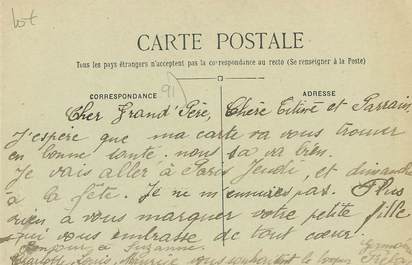 lot
CARTE POSTALE
Tous les pays étrangers n'acceptent pas la correspondance au recto (Se renseigner à la Poste)
91
CORRESPONDANCE
ADRESSE
Cher Grand'Père, Chère Titine et Parrain,
J'espère que ma carte va vous trouver
en bonne santé nous sa va bien.
Je vais aller à Paris Jeudi, et dimanche
à la fête. Je ne m'ennuies pas. Plus
rien à vous marquer votre petite fille
qui vous embrasse de tout cœur.
Bonjour à Suzanne. Germaine
Charlotte, Louis, vous souhaitent le